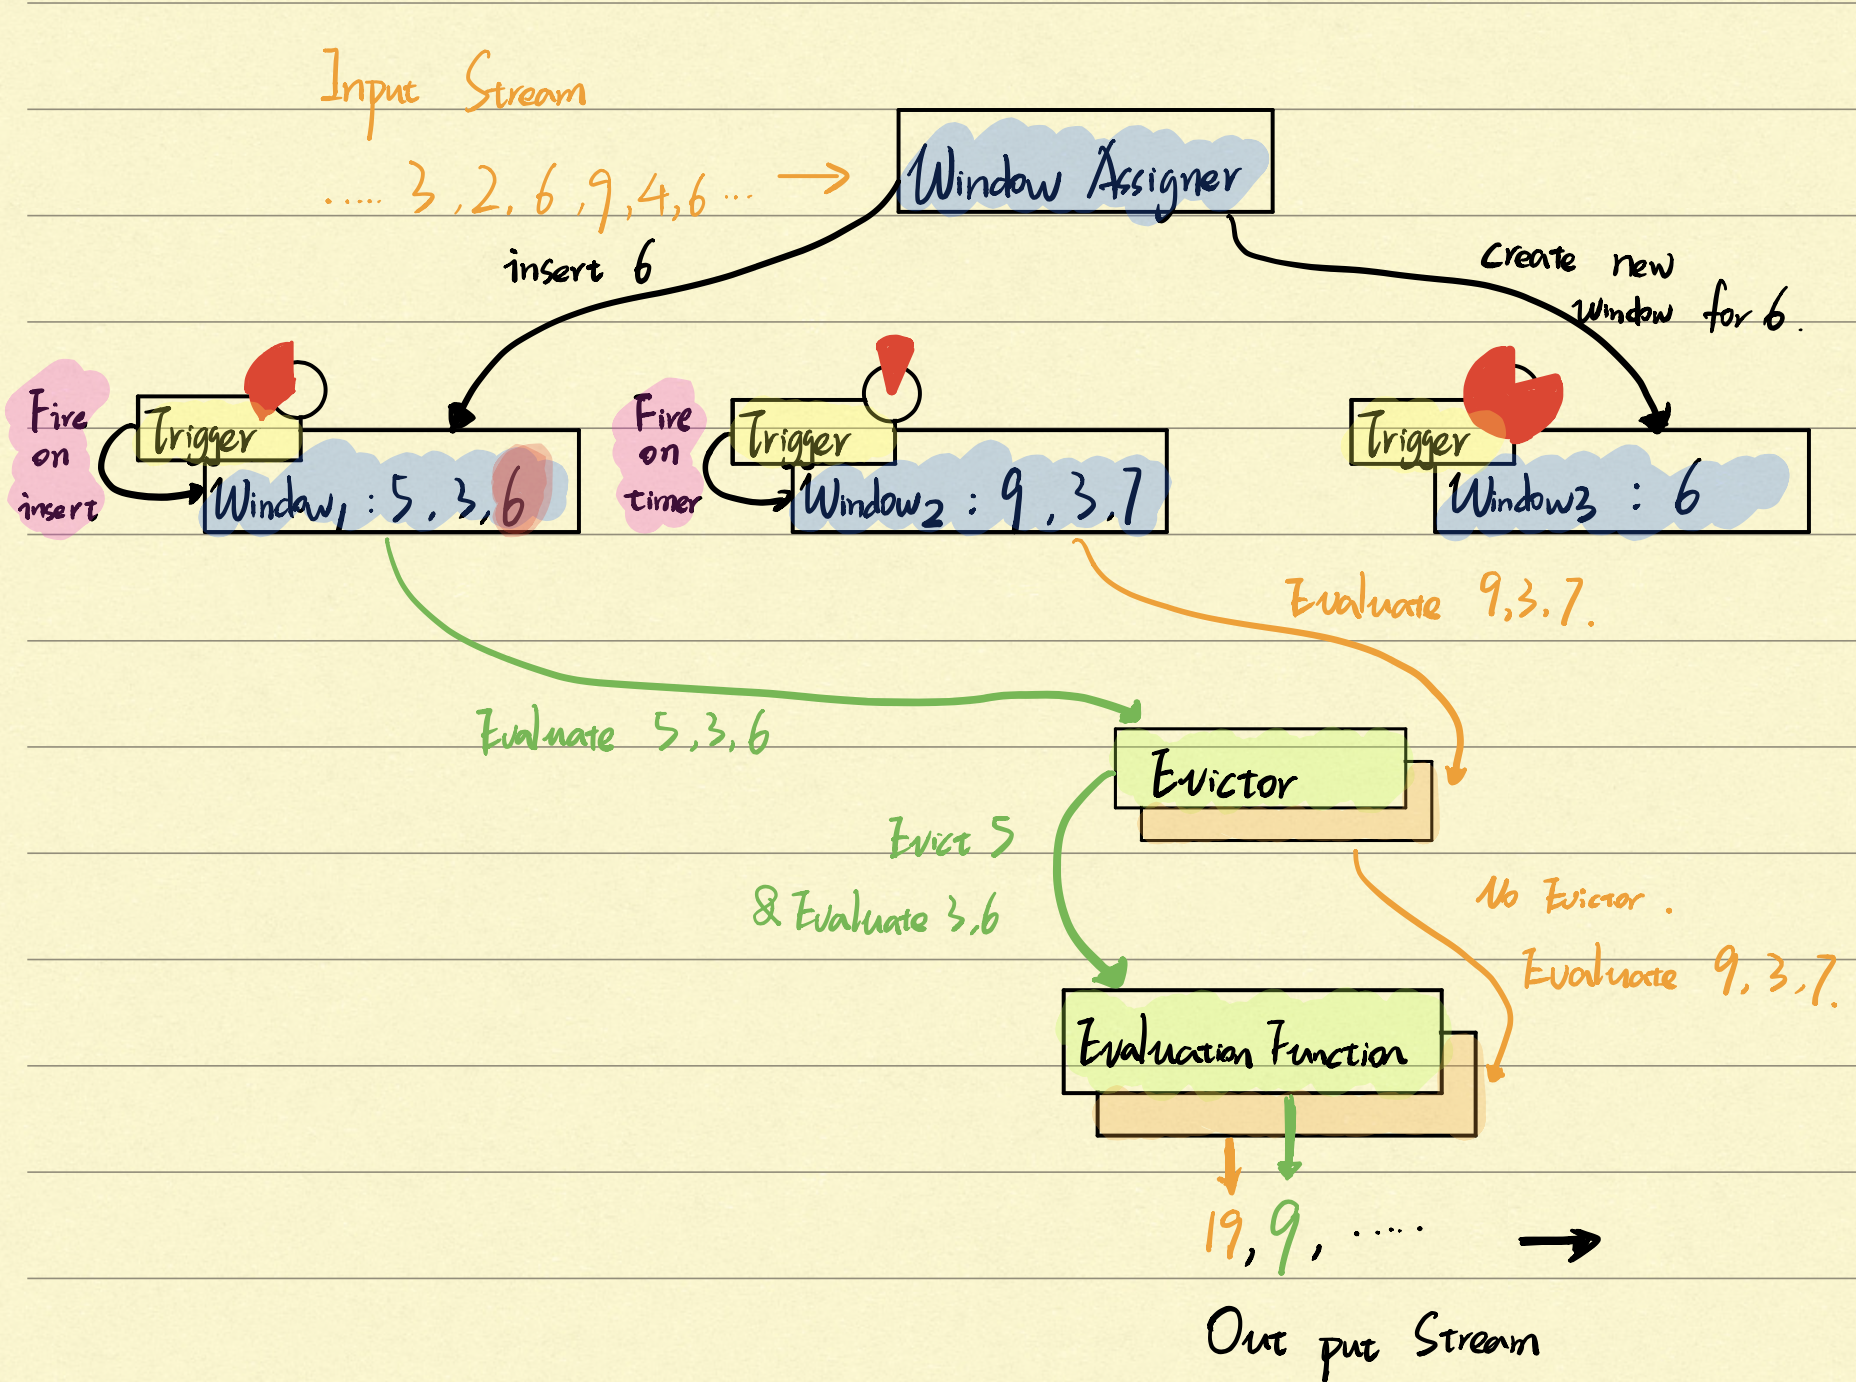 Input Stream
..... 3, 2, 6, 9, 4, 6 ...
Window Assigner
insert 6
create new
window for 6.
Fire
on
insert
Trigger
Window1 : 5, 3, 6
Fire
on
timer
Trigger
Window2 : 9, 3, 7
Trigger
Window3 : 6
Evaluate 9,3,7.
Evaluate 5,3,6
Evictor
Evict 5
& Evaluate 3,6
No Evictor.
Evaluate 9,3,7.
Evaluation Function
19, 9, .....
Out put Stream